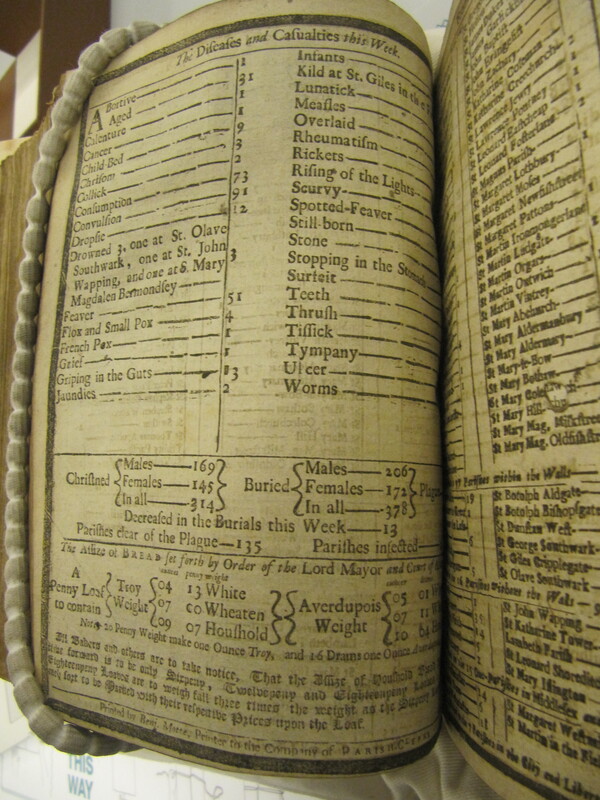 The Diseases and Casualties this Week.
ABortive
Aged
Calenture
Cancer
Child Bed
Chrisom
Collick
Consumption
Convulsion
Dropsie
Drowned 3, one at St. Olave
Southwark, one at St. John
Wapping, and one at S. Mary
Magdalen Bermondsey
Feaver
Flox and Small Pox
French Pox
Grief
Griping in the Guts
Jaundies
2
31
1
1
9
3
2
73
91
12
3
51
4
1
1
13
2
Infants
Kild at St. Giles in the
Lunatick
Measles
Overlaid
Rheumatism
Rickets
Rising of the Lights
Scurvy
Spotted-Feaver
Still born
Stone
Stopping in the Stomach
Surfeit
Teeth
Thrush
Tissick
Tympany
Ulcer
Worms
Christned { Males—169 Females—145 In all—314 } Buried { Males—206 Females—172 In all—378 } Plague
Decreased in the Burials this Week—13
Parishes clear of the Plague—135 Parishes infected
The Assize of BREAD set forth by Order of the Lord Mayor and Court of
ounces penny weight
A Penny Loaf to contain { Troy Weight { 04 13 White
07 00 Wheaten
09 07 Houshold } { Averdupois Weight { 05 01
07 11
10 04
Note, 20 Penny Weight make one Ounce Troy, and 16 Drams one Ounce
All Bakers and others are to take notice, That the Assize of Houshold
forward is to be only Sixpeny, Twelvepeny and Eighteenpeny Loaves
Eighteenpeny Loaves are to weigh full three times the weight as the Sixpeny
to be Marked with their respective Prices upon the Loaf.
Printed by Benj. Motte, Printer to the Company of PARISH-CLERKS
Katharine Coleman
Katharine Creechurch
Lawrence Jewry
Lawrence Pountney
St Leonard Eastcheap
St Leonard Fosterlane
St Magnus Parish
St Margaret Lothbury
St Margaret Moses
St Margaret Newfishstreet
St Margaret Pattons
St Martin Ironmongerlane
St Martin Ludgate
St Martin Orgars
St Martin Outwich
St Martin Vintrey
St Mary Abchurch
St Mary Aldermanbury
St Mary Aldermary
St Mary-le-Bow
St Mary Bothaw
St Mary Colechurch
St Mary Hill
St Mary Mag. Milkstreet
St Mary Mag. Oldfishstr
Parishes within the Walls
St Botolph Aldgate
St Botolph Bishopsgate
St Dunstan West
St George Southwark
St Giles Cripplegate
St Olave Southwark
Parishes without the Walls
St John Wapping
St Katharine Tower
Lambeth Parish
St Leonard Shoreditch
St Mary Islington
Parishes in Middlesex and
St Margaret Westmin
St Martin in the
in the City and Libert
THIS
WAY